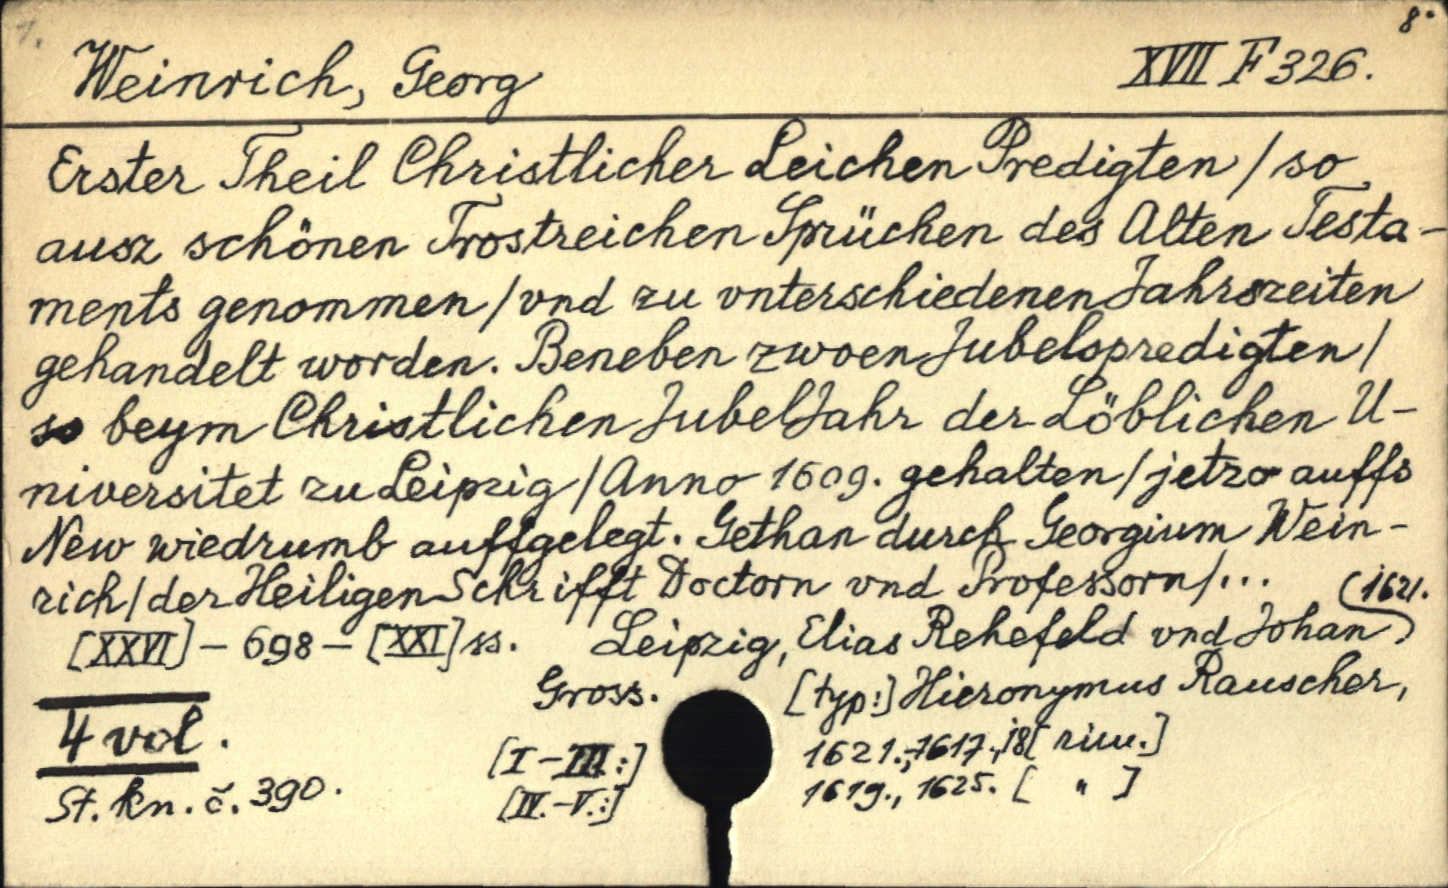 7.
8°
Weinrich, Georg XVII F 326.
Erster Theil Christlicher Leichen Predigten / so
ausz schönen Trostreichen Sprüchen des Alten Testa-
ments genommen / vnd zu vnterschiedenen Jahrszeiten
gehandelt worden. Beneben zwoen Jubelspredigten /
so beym Christlichen JubelJahr der Löblichen U-
niversitet zu Leipzig / Anno 1609. gehalten / jetzo auffs
New wiedrumb auffgelegt. Gethan durch Georgium Wein-
rich / der Heiligen Schrifft Doctorn vnd Professorn / ... (1621.
[XXVI] - 698 - [XXI] ss. Leipzig, Elias Rehefeld vnd Johan)
Gross. [typ:] Hieronymus Rauscher,
4 vol. [I-III:] 1621.,1617.,18[ risu.]
St. kn. č. 390. [IV.-V.:] 1619., 1625. [ " ]